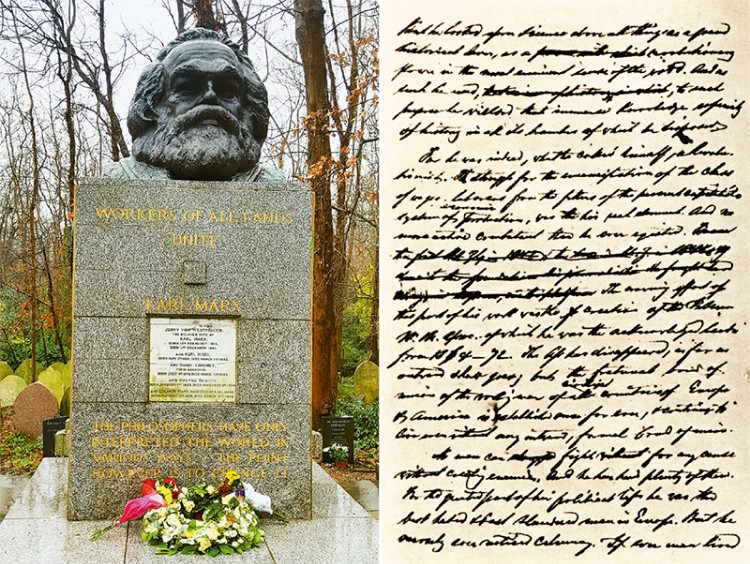 WORKERS OF ALL LANDS
UNITE
KARL MARX
JENNY VON WESTPHALEN
THE BELOVED WIFE OF
KARL MARX
BORN
DIED DECEMBER 1881
AND KARL MARX
BORN MAY DIED MARCH
AND HARRY LONGUET
THEIR GRANDSON
BORN JULY DIED MARCH
AND HELENA DEMUTH
THE PHILOSOPHERS HAVE ONLY
INTERPRETED THE WORLD IN
VARIOUS WAYS · THE POINT
HOWEVER IS TO CHANGE IT
he looked upon science above all things as a grand
historical lever, as a revolutionary
power in the most eminent sense of the word. And as
such he used, to such
purpose he wielded that immense knowledge especially
of history in all its branches of which he disposed.
For he was indeed, what he called himself, a
The struggle for the emancipation of the class
of wages labourers from the fetters of the present capitalist
economic
system of production, was his real element. And no
more active combatant than he ever existed.
The crowning effort of
this part of his work was the creation of the
of which he was the acknowledged leader
from 1864–72. The has disappeared, as far as
outward show goes; but the fraternal bond of
union of the working men of all countries of Europe
& America is established once for ever, & continues to
live even without any outward, formal bond of union.
No man can fight without for any cause
without creating enemies. And he has had plenty of them.
For the greater part of his political life he was the
best hated & best slandered man in Europe. But he
scarcely ever noticed calumny. If ever man lived